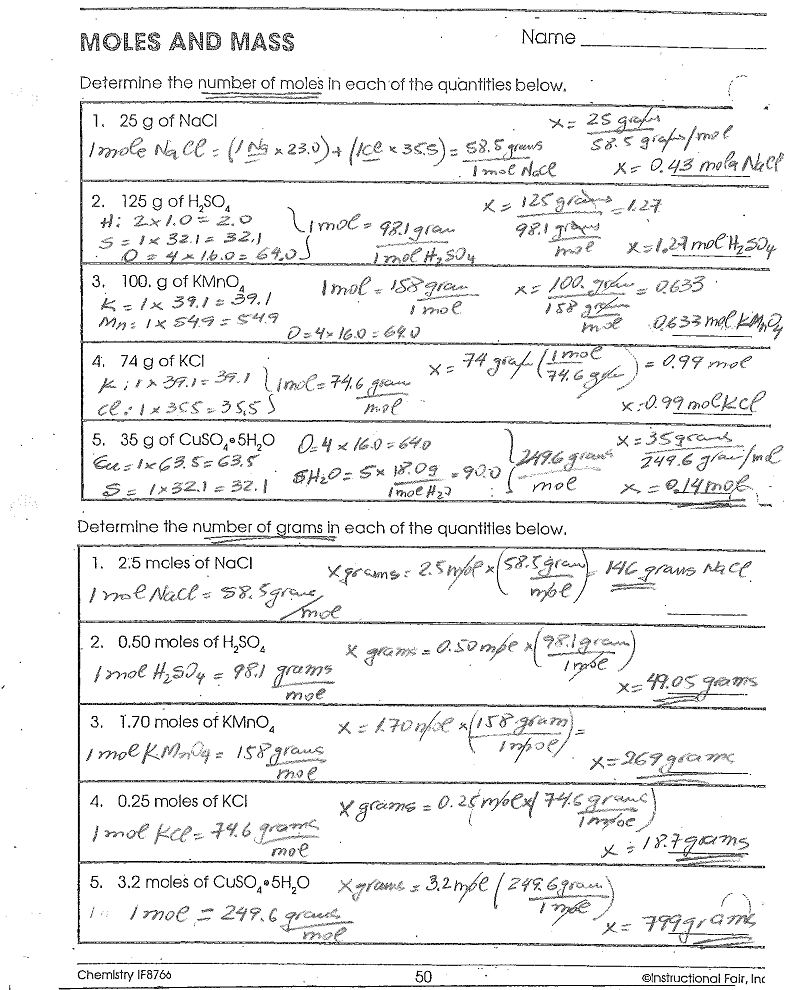 MOLES AND MASS Name
Determine the number of moles in each of the quantities below.
1. 25 g of NaCl x = 25 grams / 58.5 grams/mol
1 mole NaCl = (1 Na x 23.0) + (1 Cl x 35.5) = 58.5 grams / 1 mol NaCl x = 0.43 mola NaCl
2. 125 g of H₂SO₄ x = 125 grams / 98.1 grams/mol = 1.27
H: 2 x 1.0 = 2.0
S = 1 x 32.1 = 32.1 1 mol = 98.1 gram / 1 mol H₂SO₄
O = 4 x 16.0 = 64.0 x = 1.27 mol H₂SO₄
3. 100. g of KMnO₄ 1 mol = 158 gram / 1 mol x = 100. gram / 158 gram/mol = 0.633
K = 1 x 39.1 = 39.1
Mn: 1 x 54.9 = 54.9 O = 4 x 16.0 = 64.0 0.633 mol KMnO₄
4. 74 g of KCl x = 74 gram (1 mol / 74.6 gram) = 0.99 mol
K: 1 x 39.1 = 39.1 1 mol = 74.6 gram / mol
Cl: 1 x 35.5 = 35.5 x = 0.99 mol KCl
5. 35 g of CuSO₄•5H₂O O = 4 x 16.0 = 64.0 x = 35 grams / 249.6 gram/mol
Cu = 1 x 63.5 = 63.5 5H₂O = 5 x 18.0g / 1 mol H₂O = 90.0 249.6 grams / mol
S = 1 x 32.1 = 32.1 x = 0.14 mol
Determine the number of grams in each of the quantities below.
1. 2.5 moles of NaCl x grams = 2.5 mol x (58.5 gram / mol) = 146 grams NaCl
1 mol NaCl = 58.5 grams / mol
2. 0.50 moles of H₂SO₄ x grams = 0.50 mole x (98.1 gram / 1 mole)
1 mol H₂SO₄ = 98.1 grams / mol x = 49.05 grams
3. 1.70 moles of KMnO₄ x = 1.70 mol x (158 gram / 1 mol) =
1 mol KMnO₄ = 158 grams / mol x = 269 grams
4. 0.25 moles of KCl x grams = 0.25 mole x (74.6 grams / 1 mole)
1 mol KCl = 74.6 grams / mol x = 18.7 grams
5. 3.2 moles of CuSO₄•5H₂O x grams = 3.2 mol (249.6 gram / 1 mol)
1 mol = 249.6 grams / mol x = 799 grams
Chemistry IF8766 50 ©Instructional Fair, Inc